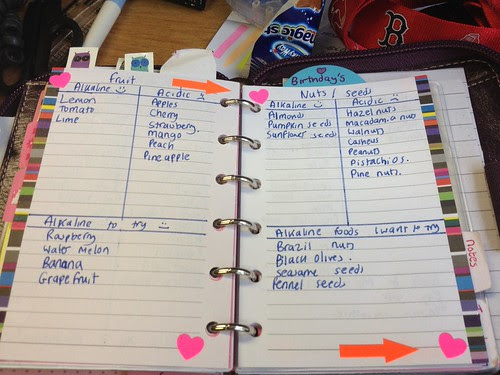 Fruit
Alkaline
Acidic
Lemon
Tomato
Lime
Apples
Cherry
Strawberry.
mango
Peach
Pineapple
Alkaline to try
Raspberry
Water melon
Banana
Grapefruit
Birthday's
Nuts / seeds
Alkaline
Acidic
Almonds
Pumpkin seeds
Sunflower seeds
Hazel nuts
macadamia nuts
Walnuts
Cashews
Peanuts
Pistachios.
Pine nuts.
Alkaline foods I want to try
Brazil nuts
Black olives.
sesame seeds
Fennel seeds
Notes
B